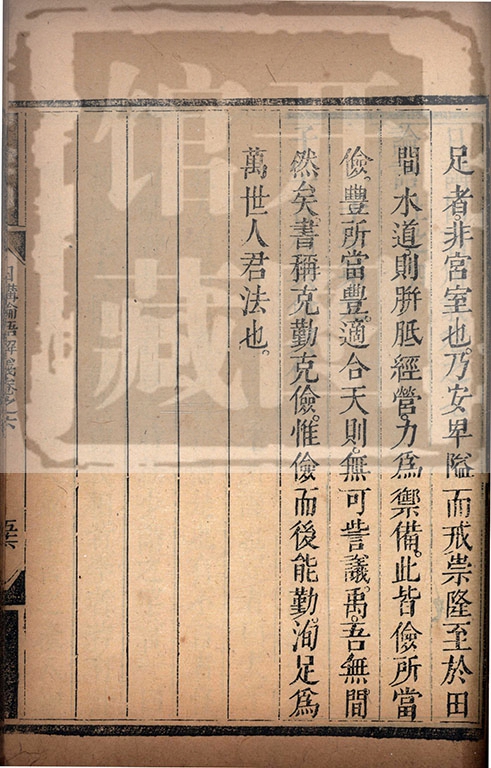 足者。非宮室也。乃安卑隘而戒崇隆至於田
間水道則胼胝經營。力為禦備。此皆儉所當
儉。豐所當豐。適合天則。無可訾議。禹。吾無間
然矣。書稱克勤克儉。惟儉而後能勤。洵足為
萬世人君法也。
日講論語解義卷之六